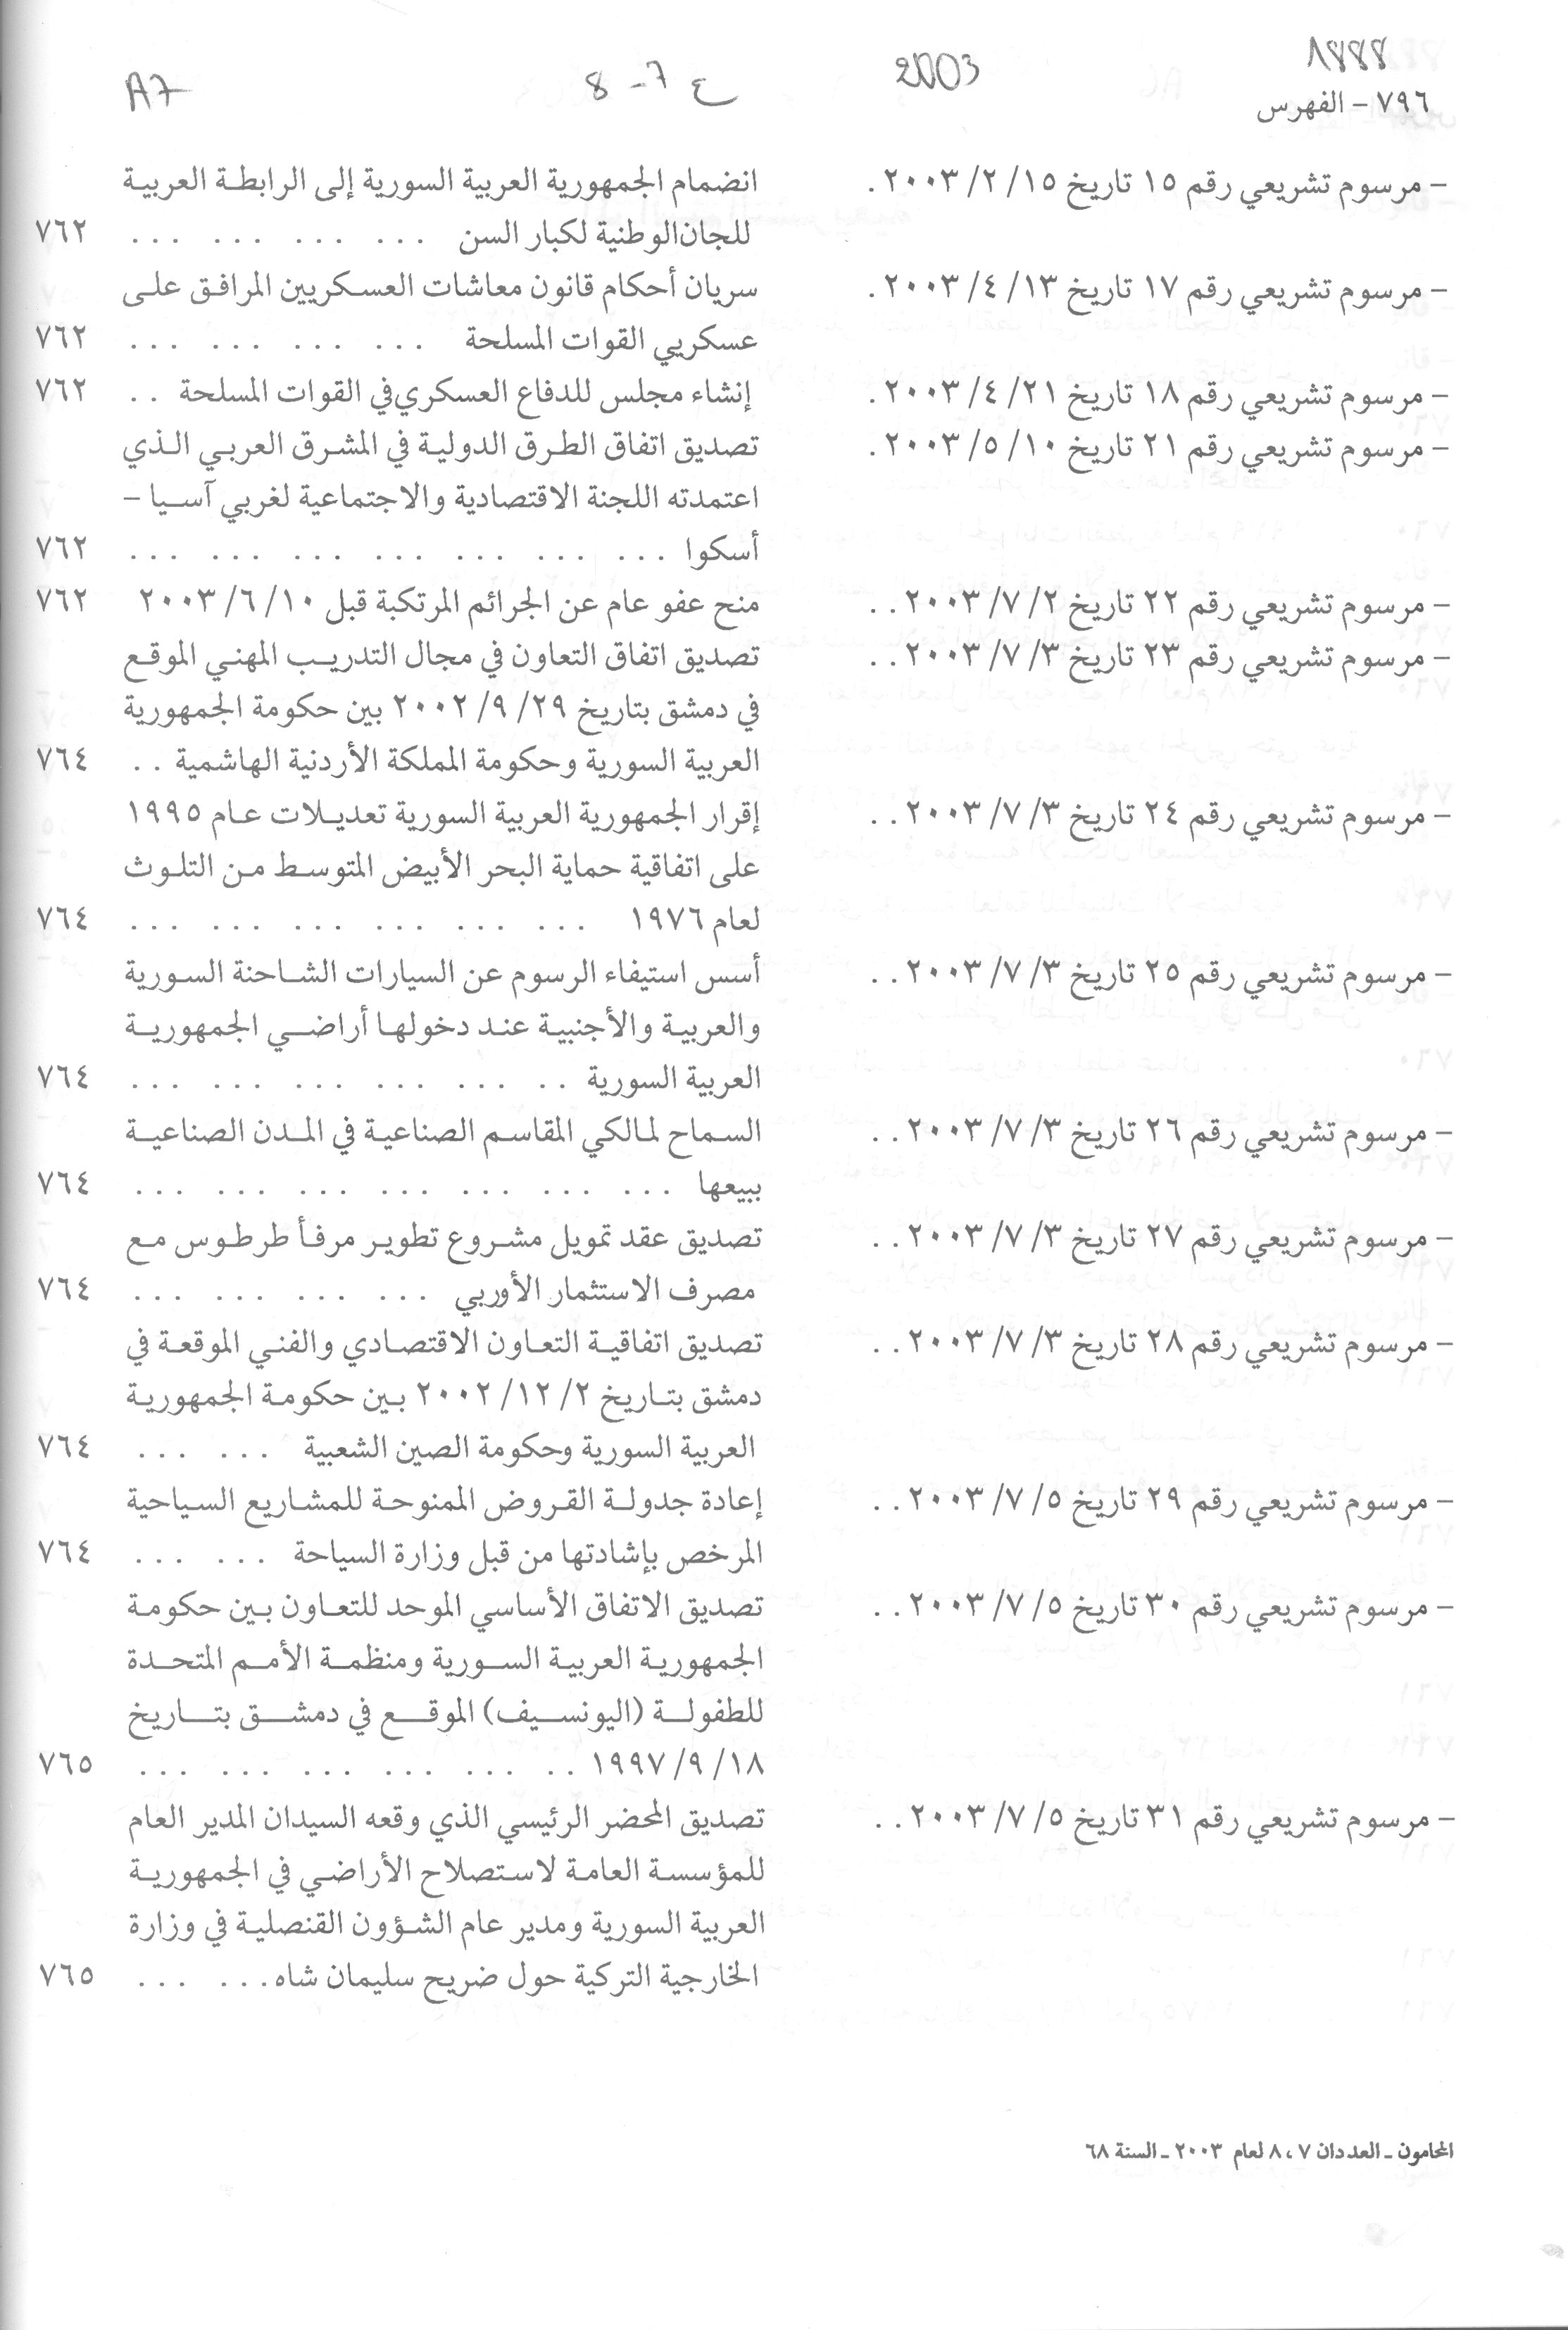 ١٨٨٨
2003
ع ٧-8
A7
٧٩٦ - الفهرس
- مرسوم تشريعي رقم ١٥ تاريخ ٢٠٠٣/٢/١٥. انضمام الجمهورية العربية السورية إلى الرابطة العربية
للجان الوطنية لكبار السن ... ... ... ... ٧٦٢
- مرسوم تشريعي رقم ١٧ تاريخ ٢٠٠٣/٤/١٣. سريان أحكام قانون معاشات العسكريين المرافق على
عسكريي القوات المسلحة ... ... ... ... ٧٦٢
- مرسوم تشريعي رقم ١٨ تاريخ ٢٠٠٣/٤/٢١. إنشاء مجلس للدفاع العسكري في القوات المسلحة .. ٧٦٢
- مرسوم تشريعي رقم ٢١ تاريخ ٢٠٠٣/٥/١٠. تصديق اتفاق الطرق الدولية في المشرق العربي الذي
اعتمدته اللجنة الاقتصادية والاجتماعية لغربي آسيا -
أسكوا ... ... ... ... ... ... ... ٧٦٢
- مرسوم تشريعي رقم ٢٢ تاريخ ٢٠٠٣/٧/٢.. منح عفو عام عن الجرائم المرتكبة قبل ٢٠٠٣/٦/١٠ ٧٦٢
- مرسوم تشريعي رقم ٢٣ تاريخ ٢٠٠٣/٧/٣.. تصديق اتفاق التعاون في مجال التدريب المهني الموقع
في دمشق بتاريخ ٢٠٠٢/٩/٢٩ بين حكومة الجمهورية
العربية السورية وحكومة المملكة الأردنية الهاشمية .. ٧٦٤
- مرسوم تشريعي رقم ٢٤ تاريخ ٢٠٠٣/٧/٣.. إقرار الجمهورية العربية السورية تعديلات عام ١٩٩٥
على اتفاقية حماية البحر الأبيض المتوسط من التلوث
لعام ١٩٧٦ ... ... ... ... ... ... ٧٦٤
- مرسوم تشريعي رقم ٢٥ تاريخ ٢٠٠٣/٧/٣.. أسس استيفاء الرسوم عن السيارات الشاحنة السورية
والعربية والأجنبية عند دخولها أراضي الجمهورية
العربية السورية .. ... ... ... ... ... ٧٦٤
- مرسوم تشريعي رقم ٢٦ تاريخ ٢٠٠٣/٧/٣.. السماح لمالكي المقاسم الصناعية في المدن الصناعية
ببيعها ... ... ... ... ... ... ... ٧٦٤
- مرسوم تشريعي رقم ٢٧ تاريخ ٢٠٠٣/٧/٣.. تصديق عقد تمويل مشروع تطوير مرفأ طرطوس مع
مصرف الاستثمار الأوربي ... ... ... ... ٧٦٤
- مرسوم تشريعي رقم ٢٨ تاريخ ٢٠٠٣/٧/٣.. تصديق اتفاقية التعاون الاقتصادي والفني الموقعة في
دمشق بتاريخ ٢٠٠٢/١٢/٢ بين حكومة الجمهورية
العربية السورية وحكومة الصين الشعبية ... ... ٧٦٤
- مرسوم تشريعي رقم ٢٩ تاريخ ٢٠٠٣/٧/٥.. إعادة جدولة القروض الممنوحة للمشاريع السياحية
المرخص بإشادتها من قبل وزارة السياحة ... ... ٧٦٤
- مرسوم تشريعي رقم ٣٠ تاريخ ٢٠٠٣/٧/٥.. تصديق الاتفاق الأساسي الموحد للتعاون بين حكومة
الجمهورية العربية السورية ومنظمة الأمم المتحدة
للطفولة (اليونسيف) الموقع في دمشق بتاريخ
١٩٩٧/٩/١٨ .. ... ... ... ... ... ٧٦٥
- مرسوم تشريعي رقم ٣١ تاريخ ٢٠٠٣/٧/٥.. تصديق المحضر الرئيسي الذي وقعه السيدان المدير العام
للمؤسسة العامة لاستصلاح الأراضي في الجمهورية
العربية السورية ومدير عام الشؤون القنصلية في وزارة
الخارجية التركية حول ضريح سليمان شاه... ... ... ٧٦٥
المحامون - العددان ٧، ٨ لعام ٢٠٠٣ - السنة ٦٨